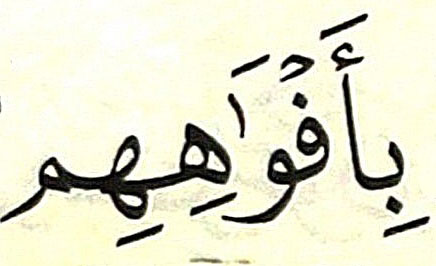 بِأَفْوَٰهِهِم